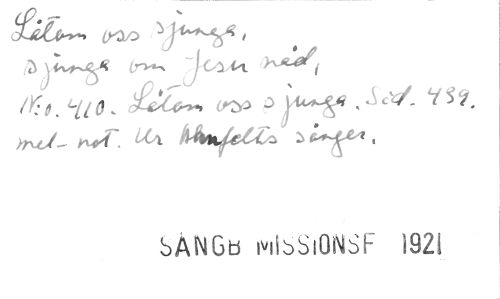 Låtom oss sjunga,
sjunga om Jesu nåd,
N:o. 410. Låtom oss sjunga. Sid. 439.
mel-not. Ur Ahnfelts sånger.
SÅNGB MISSIONSF 1921